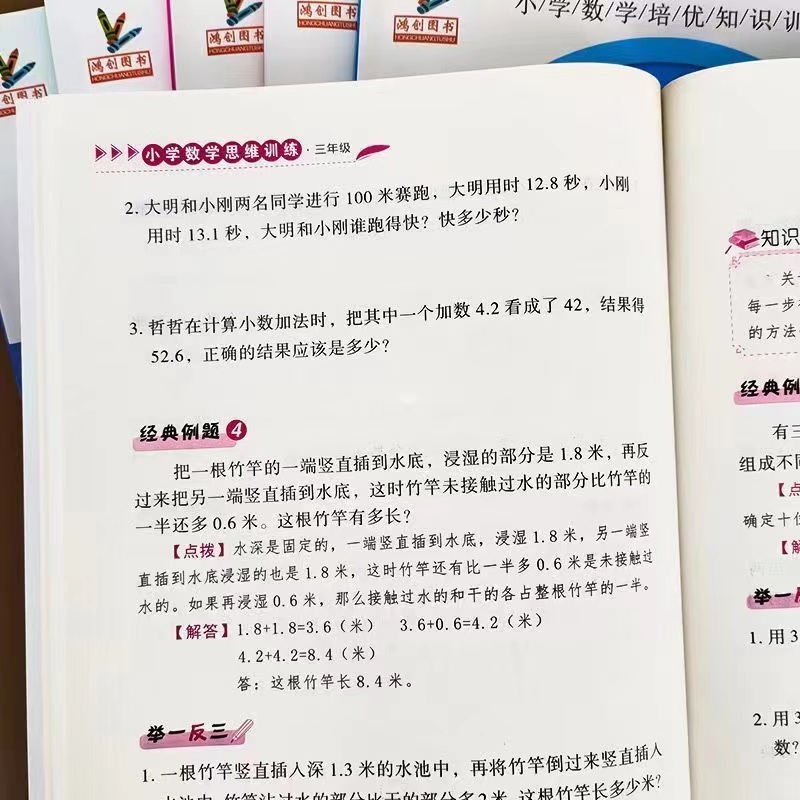 鸿创图书
HONGCHUANGTUSHU
鸿创图书
HONGCHUANGTUSHU
鸿创图书
HONGCHUANGTUSHU
鸿创图书
HONGCHUANGTUSHU
鸿创图书
HONGCHUANGTUSHU
小/学/数/学/培/优/知/识/训
小学数学思维训练·三年级
2. 大明和小刚两名同学进行 100 米赛跑，大明用时 12.8 秒，小刚
用时 13.1 秒，大明和小刚谁跑得快？快多少秒？
3. 哲哲在计算小数加法时，把其中一个加数 4.2 看成了 42，结果得
52.6，正确的结果应该是多少？
经典例题 4
把一根竹竿的一端竖直插到水底，浸湿的部分是 1.8 米，再反
过来把另一端竖直插到水底，这时竹竿未接触过水的部分比竹竿的
一半还多 0.6 米。这根竹竿有多长？
【点拨】水深是固定的，一端竖直插到水底，浸湿 1.8 米，另一端竖
直插到水底浸湿的也是 1.8 米，这时竹竿还有比一半多 0.6 米是未接触过
水的。如果再浸湿 0.6 米，那么接触过水的和干的各占整根竹竿的一半。
【解答】1.8+1.8=3.6（米） 3.6+0.6=4.2（米）
4.2+4.2=8.4（米）
答：这根竹竿长 8.4 米。
举一反三
1. 一根竹竿竖直插入深 1.3 米的水池中，再将竹竿倒过来竖直插入
水池中，竹竿沾过水的部分比干的部分多 2 米，这根竹竿长多少米？
知识
关
每一步
的方法
经典例
有三
组成不同
【点
确定十位
【解
举一反
1. 用 3
2. 用 3
数？